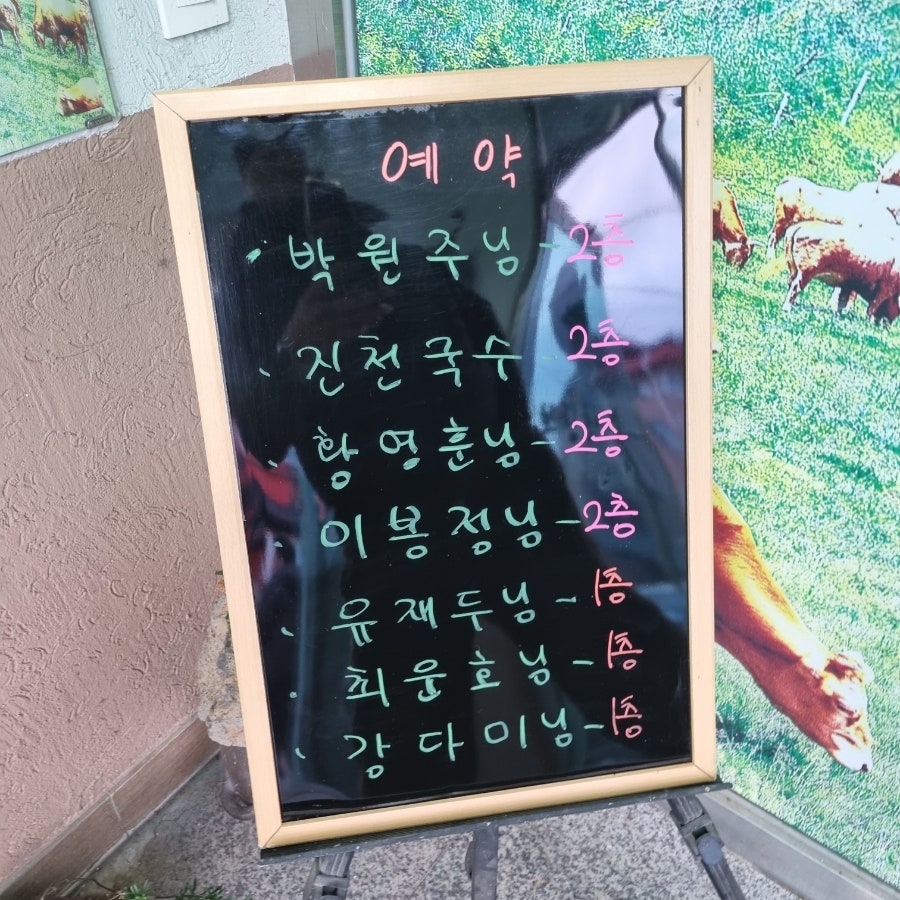 예약
· 박원주님 - 2층
· 진천국수 - 2층
· 황영훈님 - 2층
· 이봉정님 - 2층
· 유재두님 - 1층
· 최윤호님 - 1층
· 강다미님 - 1층